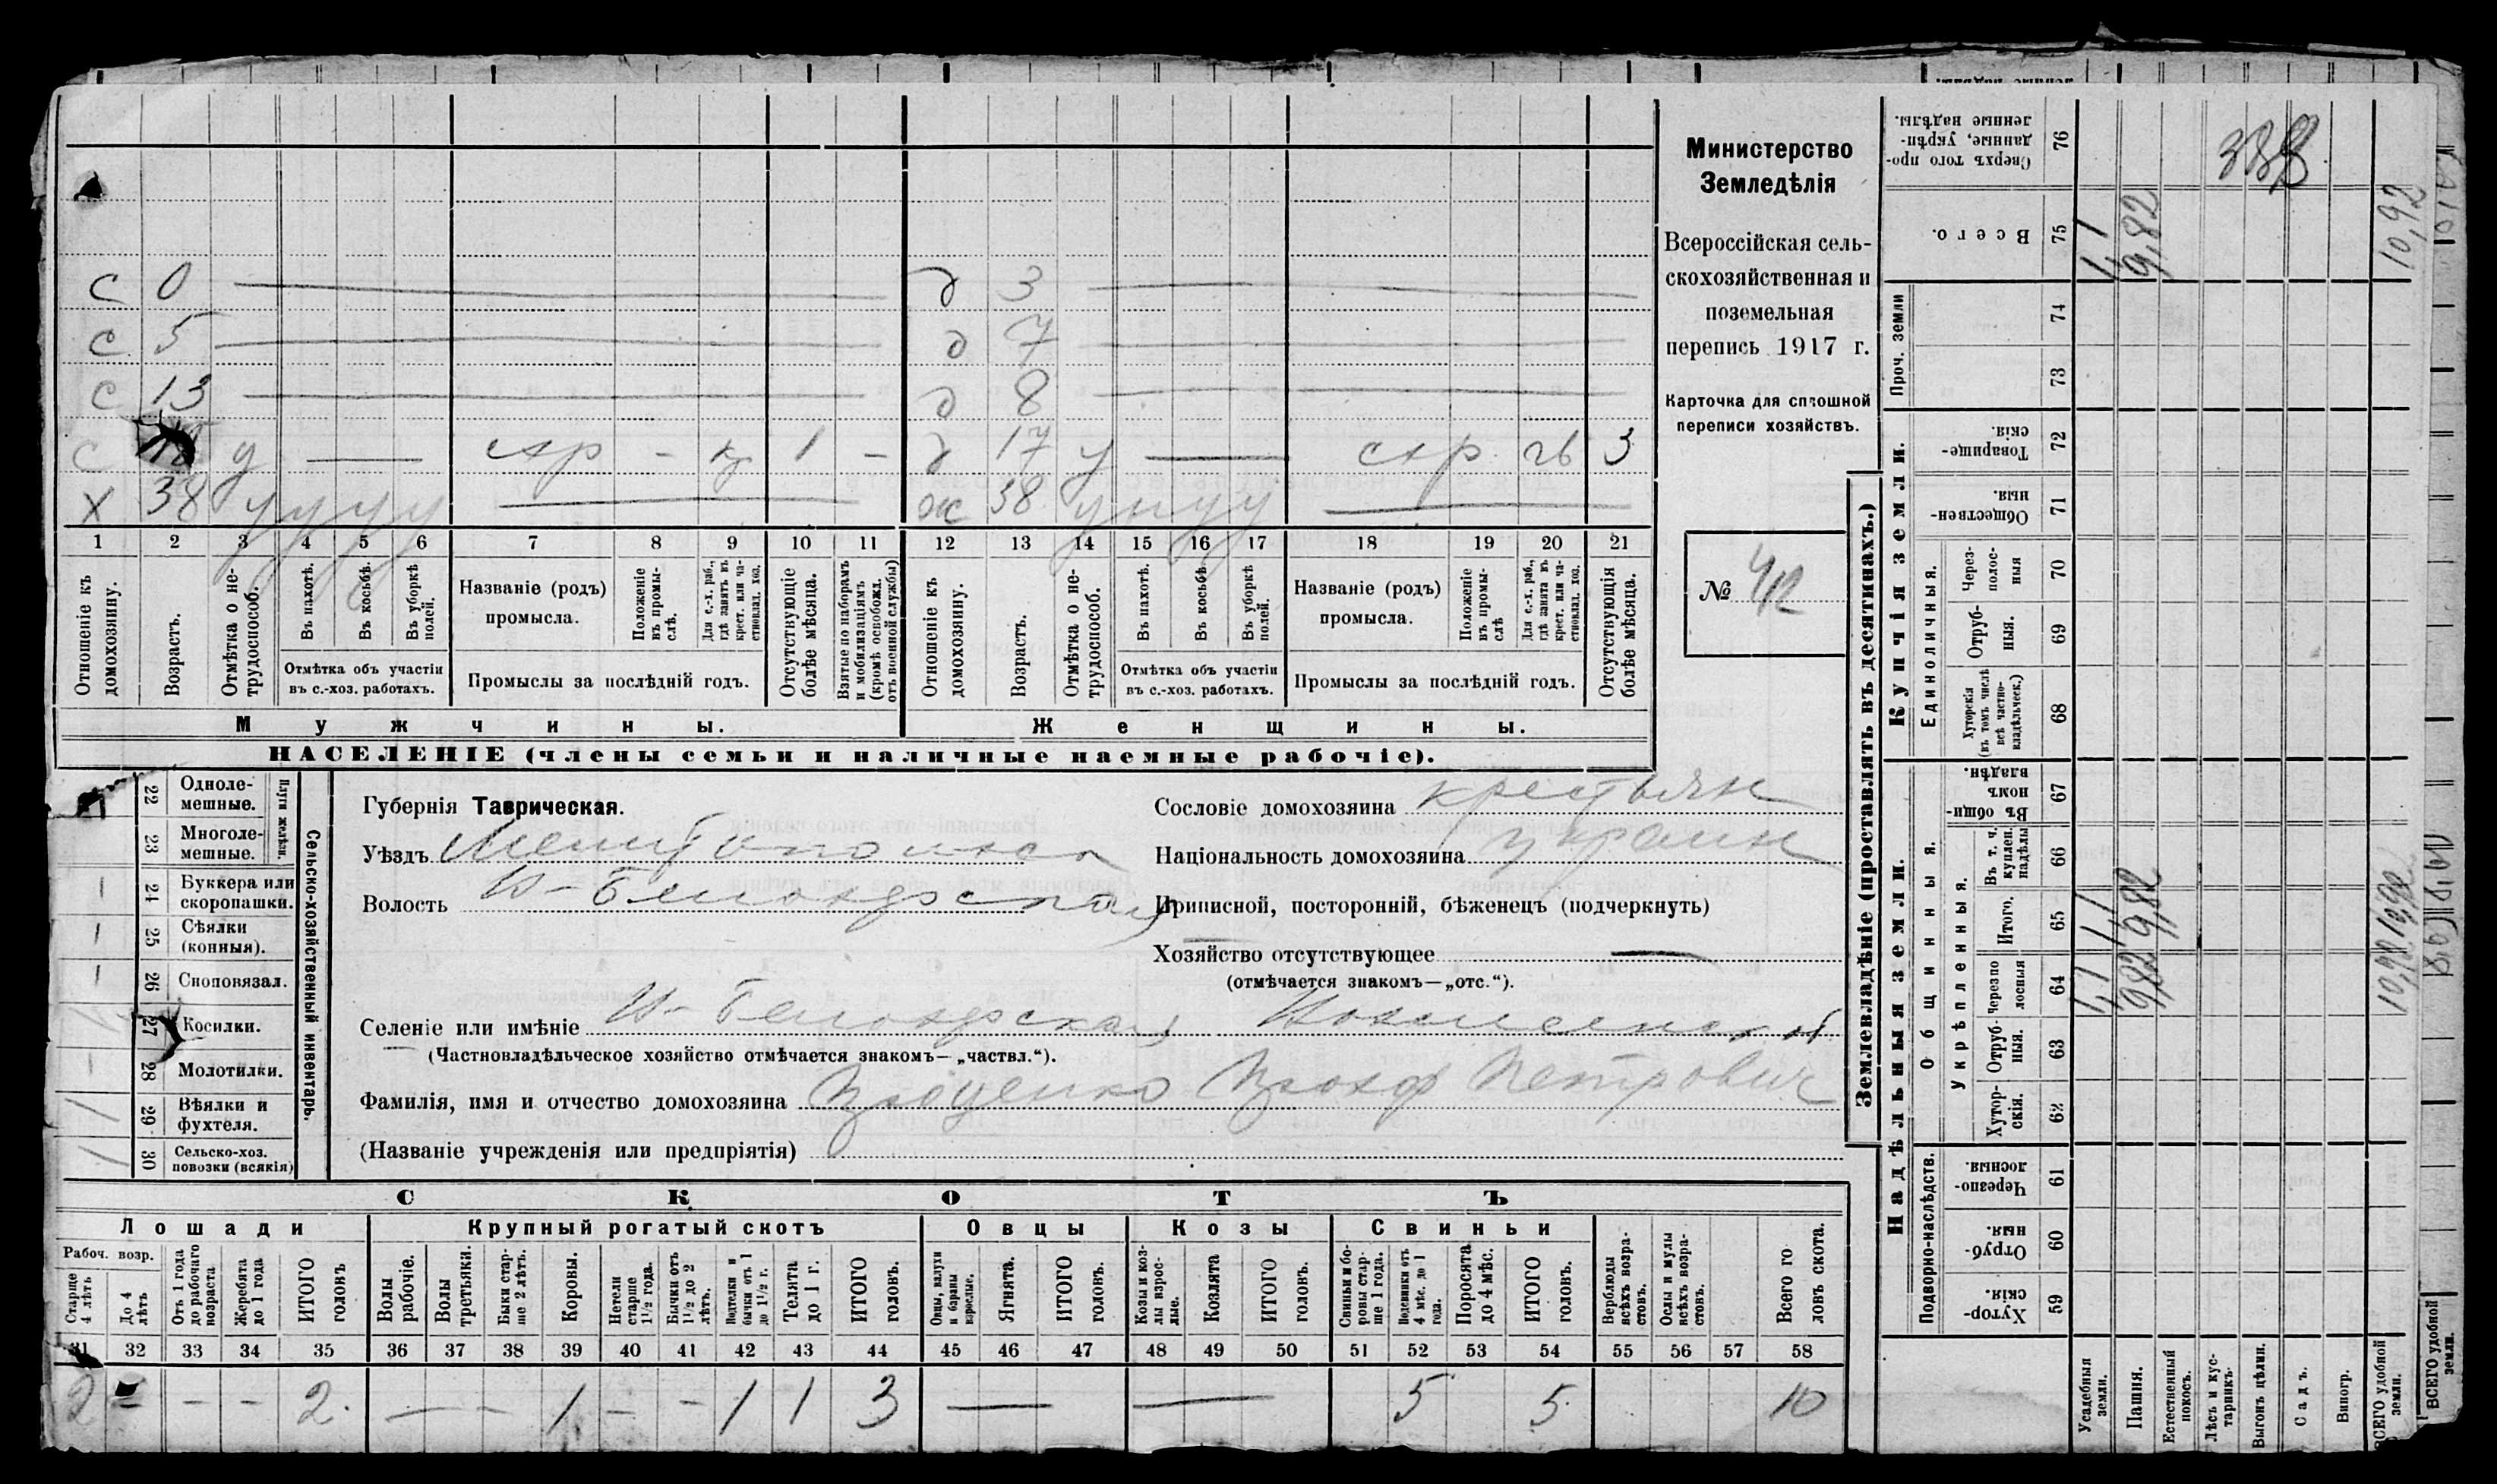 с 0 — д 3 —
с 5 — д 7 —
с 13 — д 8 —
с у — стр - 1 - д 17 у — стр 3
х 38 у у у у — ж 38 у у у —
1 2 3 4 5 6 7 8 9 10 11 12 13 14 15 16 17 18 19 20 21
Отношеніе къ домохозяину.
Возрастъ.
Отмѣтка о нетрудоспособ.
Въ пахотѣ.
Въ косьбѣ.
Въ уборкѣ полей.
Отмѣтка объ участіи въ с.-хоз. работахъ.
Названіе (родъ) промысла.
Положеніе въ промыслѣ.
Для с.-х. раб., гдѣ занятъ въ крест. или частновлад. хоз.
Промыслы за послѣдній годъ.
Отсутствующіе болѣе мѣсяца.
Взятые по наборамъ и мобилизаціямъ (кромѣ освобожд. отъ военной службы)
Отношеніе къ домохозяину.
Возрастъ.
Отмѣтка о нетрудоспособ.
Въ пахотѣ.
Въ косьбѣ.
Въ уборкѣ полей.
Отмѣтка объ участіи въ с.-хоз. работахъ.
Названіе (родъ) промысла.
Положеніе въ промыслѣ
Для с.-х. раб., гдѣ занята въ крест. или частновлад. хоз.
Промыслы за послѣдній годъ.
Отсутствующія болѣе мѣсяца.
Мужчины.
Женщины.
НАСЕЛЕНІЕ (члены семьи и наличные наемные рабочіе).
Министерство
Земледѣлія
Всероссійская сель-
скохозяйственная и
поземельная
перепись 1917 г.
Карточка для сплошной
переписи хозяйствъ.
№ 412
22 Одноле-
мешные.
23 Многоле-
мешные.
Плуги желѣзн.
1 24 Буккера или
скоропашки.
1 25 Сѣялки
(конныя).
1 26 Сноповязал.
27 Косилки.
- 28 Молотилки.
1 29 Вѣялки и
фухтеля.
1 30 Сельско-хоз.
повозки (всякія)
Сельско-хозяйственный инвентарь.
Губернія Таврическая.
Уѣздъ Мелитопольск
Волость Н-Белозерская
Селеніе или имѣніе Н-Белозерская
(Частновладѣльческое хозяйство отмѣчается знакомъ— „частвл.“).
Фамилія, имя и отчество домохозяина Петрович
(Названіе учрежденія или предпріятія)
Сословіе домохозяина крестьян
Національность домохозяина украин
Приписной, посторонній, бѣженецъ (подчеркнуть)
Хозяйство отсутствующее —
(отмѣчается знакомъ—„отс.“).
СКОТЪ
Лошади
Крупный рогатый скотъ
Овцы
Козы
Свиньи
Рабоч. возр.
Старше 4 лѣтъ
До 4 лѣтъ
Отъ 1 года до рабочаго возраста
Жеребята до 1 года
ИТОГО головъ
Волы рабочіе.
Волы третьяки.
Быки старше 2 лѣтъ.
Коровы.
Нетели старше 1½ года.
Бычки отъ 1½ до 2 лѣтъ.
Подтелки и бычки отъ 1 до 1½ г.
Телята до 1 г.
ИТОГО головъ.
Овцы, валухи и бараны взрослые.
Ягнята.
ИТОГО головъ.
Козы и козлы взрослые.
Козлята
ИТОГО головъ.
Свиньи и боровы старше 1 года.
Подсвинки отъ 4 мѣс. до 1 года.
Поросята до 4 мѣс.
ИТОГО головъ.
Верблюды всѣхъ возрастовъ.
Ослы и мулы всѣхъ возрастовъ.
Всего головъ скота.
31 32 33 34 35 36 37 38 39 40 41 42 43 44 45 46 47 48 49 50 51 52 53 54 55 56 57 58
2 - - - 2. — - 1 - - 1 1 3 — — 5 5. 10
Землевладѣніе (проставлять въ десятинахъ.)
Купчія земли.
Надѣльныя земли.
Сверхъ того проданные, укрѣпленные надѣлы. 76
Всего. 75 1,1 9,82 10,92
Проч. земли
74
73
Товарищескія. 72
Общественныя. 71
Единоличныя.
Черезполосныя 70
Отрубныя. 69
Хуторскія (въ томъ числѣ всѣ частновладѣльческ.) 68
Общинныя.
Въ общинномъ владѣн. 67
Въ т. ч. куплен. надѣлы 66
Укрѣпленныя.
Итого. 65 1,1 9,82 10,92
Черезполосныя 64 1,1 9,82 10,92
Отрубныя. 63
Хуторскія. 62
Подворно-наслѣдств.
Черезполосныя. 61
Отрубныя. 60
Хуторскія. 59
Усадебныя земли.
Пашня.
Естественный покосъ.
Лѣсъ и кустарникъ.
Выгонъ цѣлин.
Садъ.
Виногр.
ВСЕГО удобной земли.
ВСЕГО удобной земли.
338